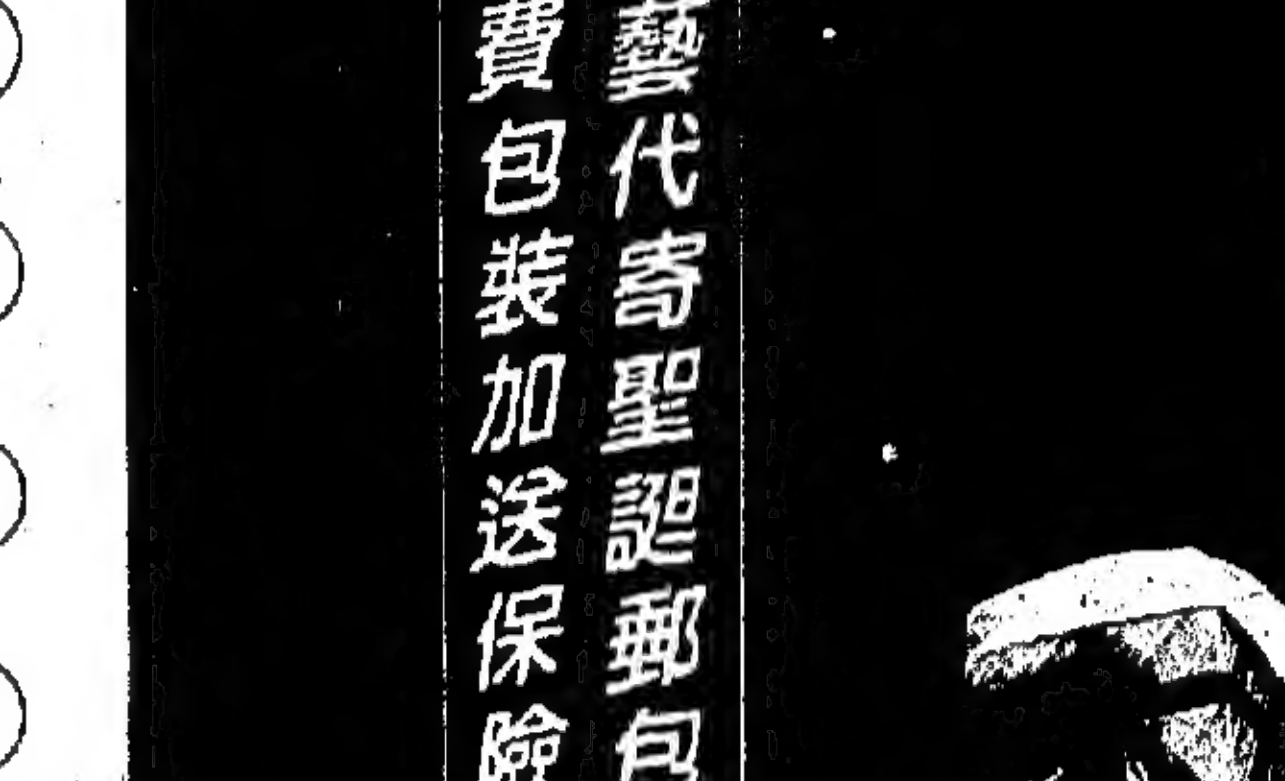 藝代寄聖誕郵包
費包裝加送保險